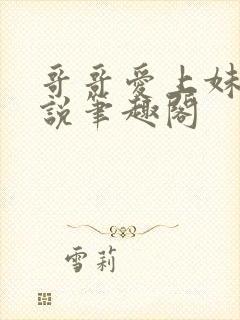 哥哥愛上妹
說筆趣閣
雪莉